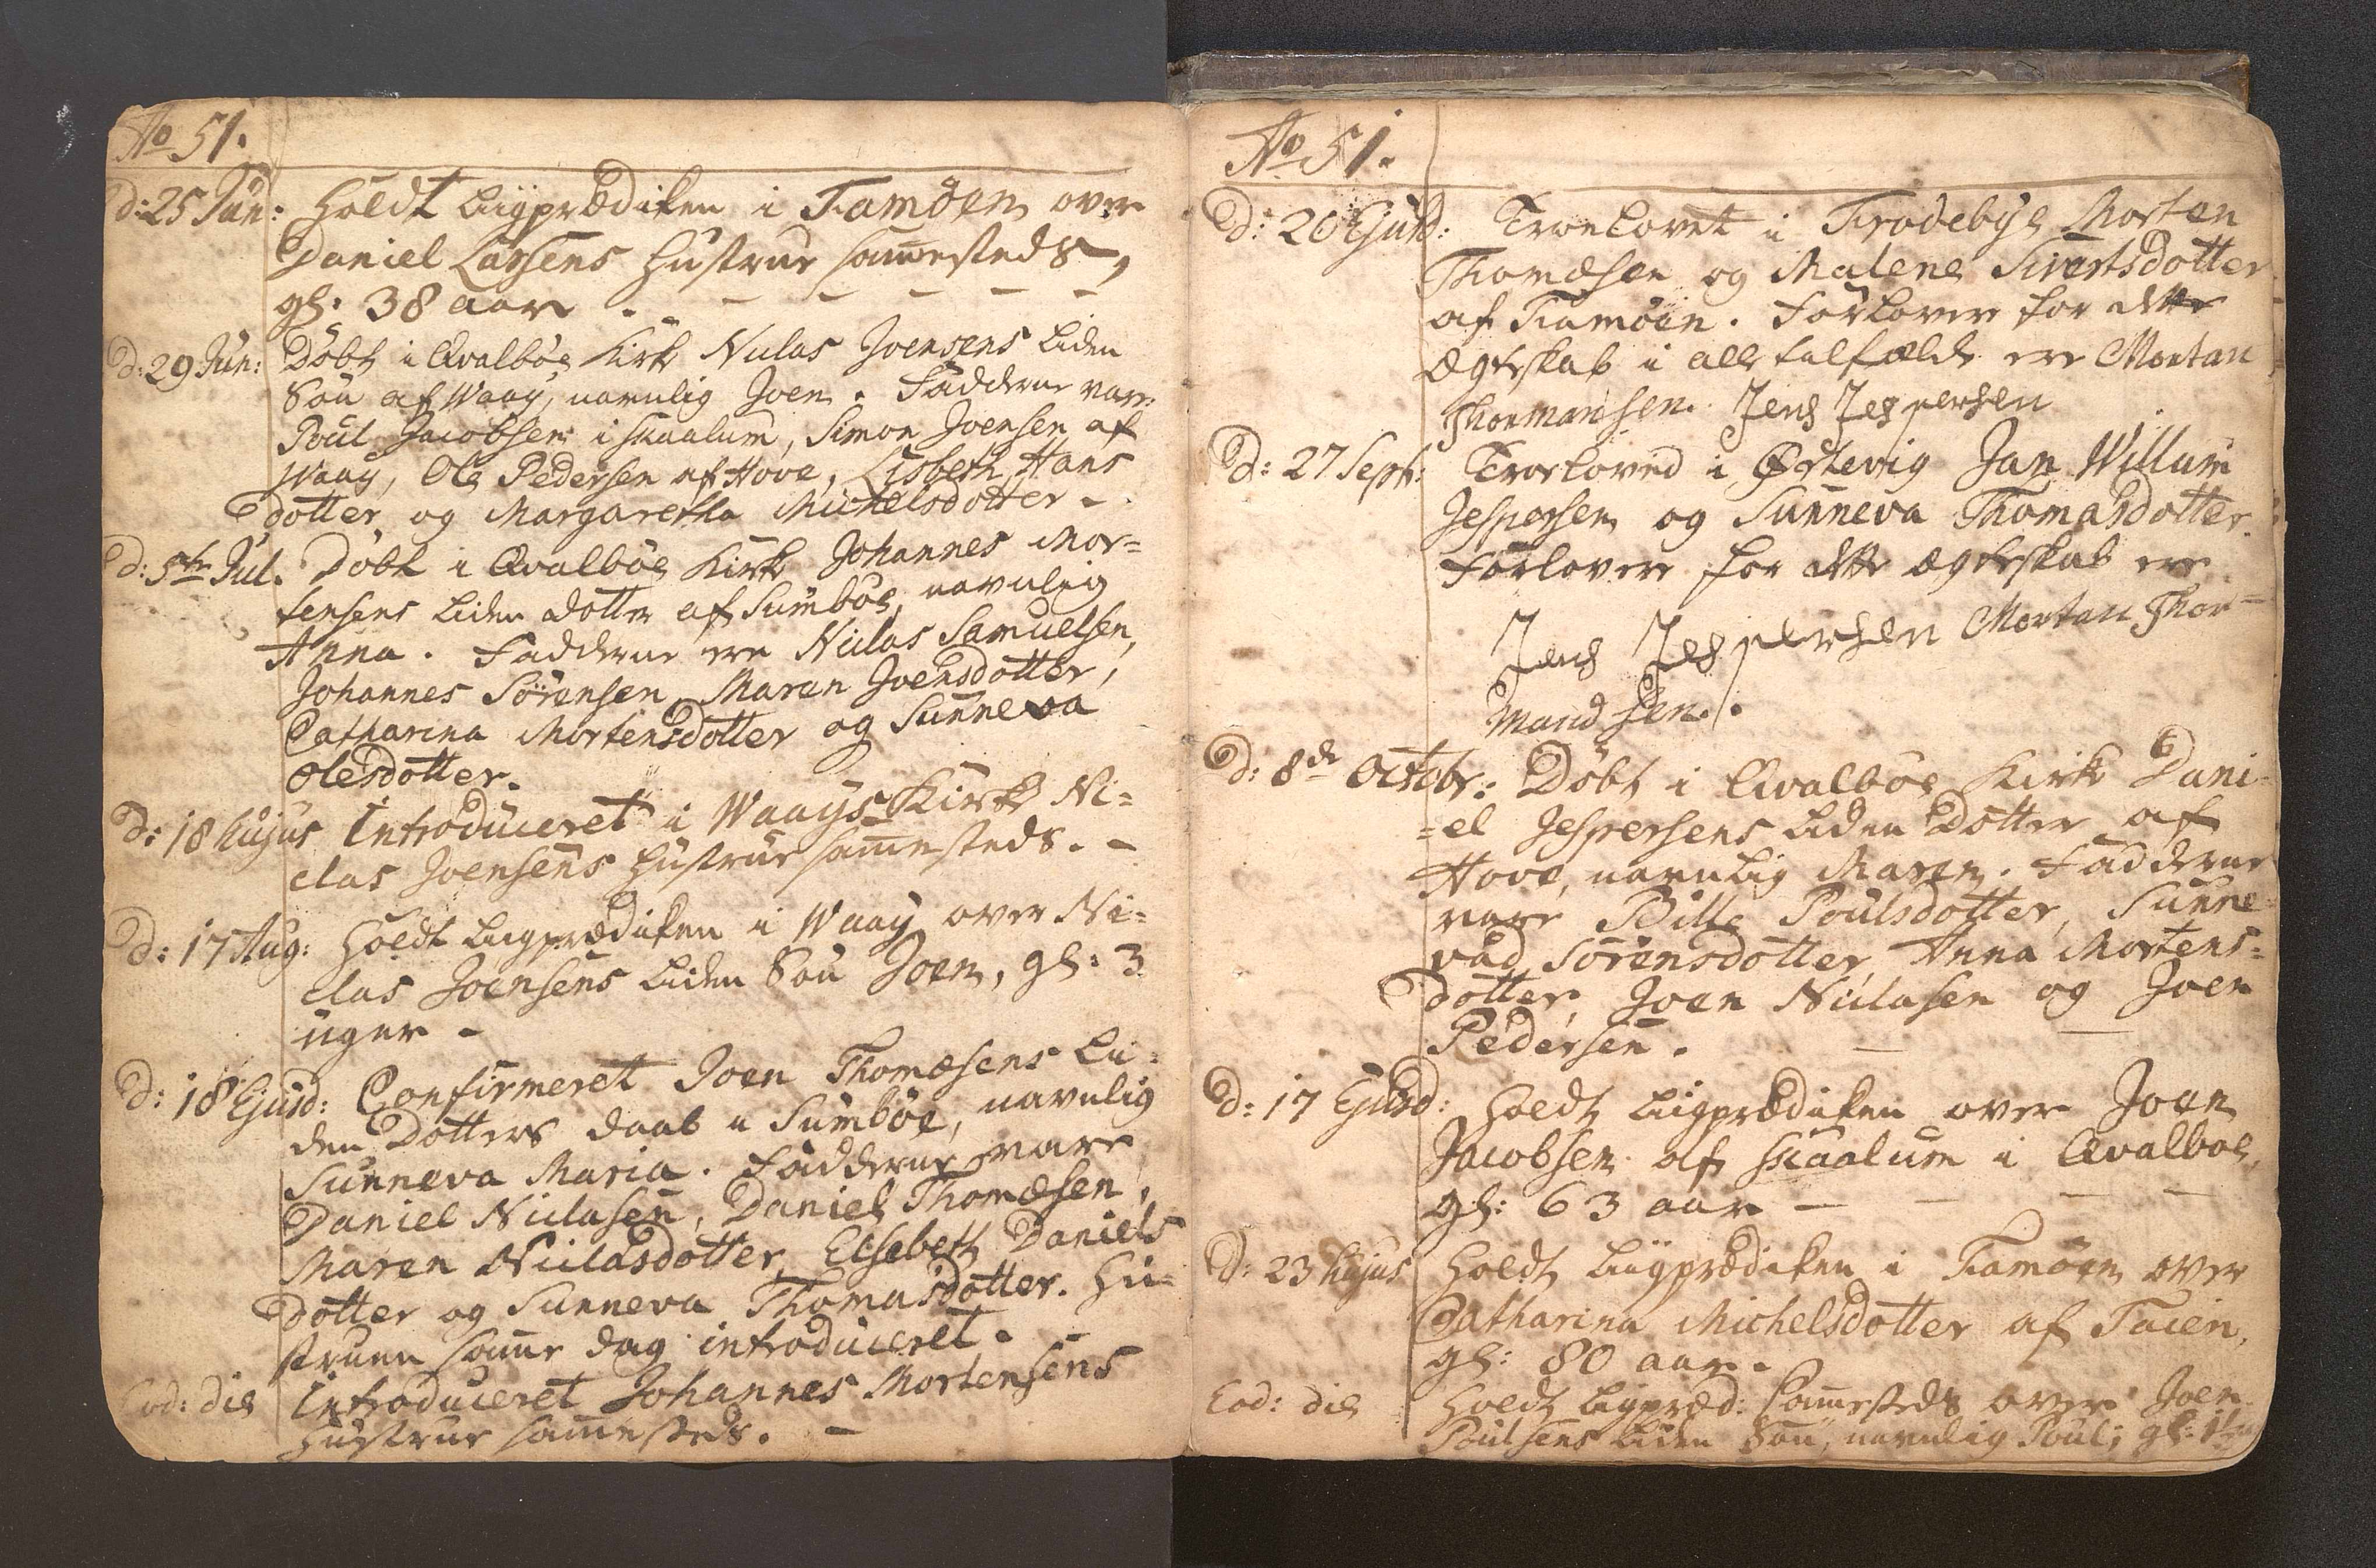 Ao 51.
D: 25 Jun: Holdt Liigprædiken i Famöen over
Daniel Larsens Hustrue sammesteds,
gl. 38 aar. - - - - -
D: 29 Jun: Döbt i Qvalböe Kirke Niclas Joensens liden
Sön af Waay, navnlig Joen. Fadderne vare:
Poul Jacobsen i Skaalum, Simon Joensen af
Waay, Ole Pedersen af Hove, Lisbeth Hans
dotter og Margaretha Michelsdotter -
D: 5te Jul. Döbt i Qvalböe Kirke Johannes Mor=
tensens liden dotter af Sumböe, navnlig
Anna. Fadderne ere Niclas Samuelsen,
Johannes Sörensen, Maren Joensdotter,
Catharina Mortensdotter og Sunneva
Olesdotter.
D: 18 hujus Introduceret i Waays Kirke Ni=
clas Joensens Hustrue sammesteds. -
D: 17 Aug: Holdt Liigprædiken i Waay over Ni=
clas Joensens liden Sön Joen, gl: 3
uger -
D: 18 Ejusd: Confirmeret Joen Thomæsens Li=
den Dotters daab i Sumböe, navnlig
Sunneva Maria. Fadderne vare
Daniel Niclasen, Daniel Thomæsen,
Maren Niclasdotter, Elsebeth Daniels
dotter og Sunneva Thomasdotter. Hu=
struen samme dag introduceret.
Eod: die Introduceret Johannes Mortensens
Hustrue sammesteds. -
Ao 51.
D: 26 Ejusd: Troelovet i Frodebye Morten
Thomæsen og Malene Sivertsdotter
af Famöen. Forlover for dette
Ægteskab i alle tilfælde ere Mortan
Thormansen. Jens Jespersen
D: 27 Sept: Troeloved i Østevig Jan Willum
Jespersen og Sunneva Thomasdotter.
Forlovere for dette Ægteskab ere
Jens Jespersen Mortan Thor=
mandsen.
D: 8de Octobr: Döbt i Qvalböe Kirke Dani=
=el Jespersens liden Dotter af
Hove, navnlig Maren. Fadderne
vare Bille Poulsdotter, Sunne
vad Sörensdotter, Anna Mortens=
dotter, Joen Niclasen og Joen
Pedersen. -
D: 17 Ejusd: Holdt Liigprædiken over Joen
Jacobsen af Skaalum i Qvalböe,
gl: 63 aar - - - -
D: 23 hujus Holdt Liigprædiken i Famöen over
Catharina Michelsdotter af
gl: 80 aar.
Eod: die Holdt Liigpræd: sammesteds over Joen
Poulsens liden Sön, navnlig Poul; gl: